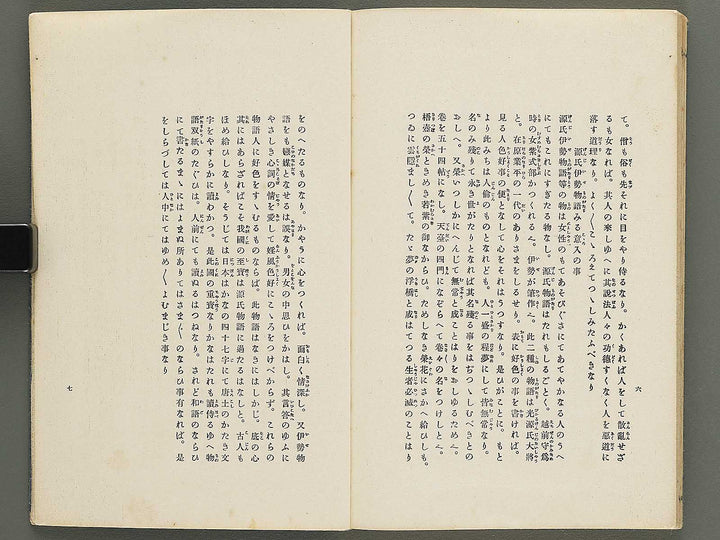 て。僧も俗も先それに目をやり侍るなり。かくあれば人をして散亂せざ
るも女なれば。其人の來しゆへに其說法人々の功德すくなく人を惡道に
落す道理なり。よく〳〵こゝろえてつゝしみたふべきなり
源氏伊勢物語みる意入の事
源氏伊勢物語等の物は女性のもてあそびぐさにてあてやかなる人のうへ
にてもこれにすぎたる物なし。源氏物語はたれもしるごとく。越前守爲
時の女紫式部がつくれる也。伊勢が筆作也。此二種の物語は光源氏大將
と。在原業平の一代のありさまをしるせり。表に好色の事を書ければ。
見る人色好事の便となして心をそれはうつすなり。是ひがことに。もと
より此みちは人倫のものとなれども。人一盛の程夢にして皆無常なり
名のみ殘りて永き世がたりとなれば其名殘る事をはぢつゝしむべきとの
おしへ。又榮いつしかにへんじて無常と成ことはりをおしゆるため也。
卷を五十四帖になし。天臺の四門になぞらへて卷々の名をつけしと也。
桐壺の榮ときめき若紫の御ながらひ。ためしなき榮花にさかへ給ひしも。
つゐに雲隱ましく て。たゞ夢の浮橋と成はてつる生者必滅のことはり
六
をのへたるものなり。かやうに心をつくれば。面白く情深し。又伊勢物
語をも戀媒となせるは誤なり。男女の中思ひをかはし。其言答のゆふに
やさしき心詞の情を愛して婬風色好にこゝろをつけべからず。これらの
物語人に好色をすゝむるものならば。此物語はなきにはしかじ。底の心
其にはあらざればこそ我國の至寶は源氏物語に過たるはなしと。古人も
ほめ給ひしなり。そうじては日本はかなの四十七字にて唐土のかたき文
字をやすらかに讀わかつ。是此國の重寶なりかなはたれも讀侍るゆへ物
語双紙のたぐひは。人前にても讀ぬるはつねなり。されど和語のならひ
にて書たるまゝにはよまぬ所ありてはさま〴〵のならひ事有なれば。是
をしらづしては人中にてはゆめ〳〵よむまじき事なり
七